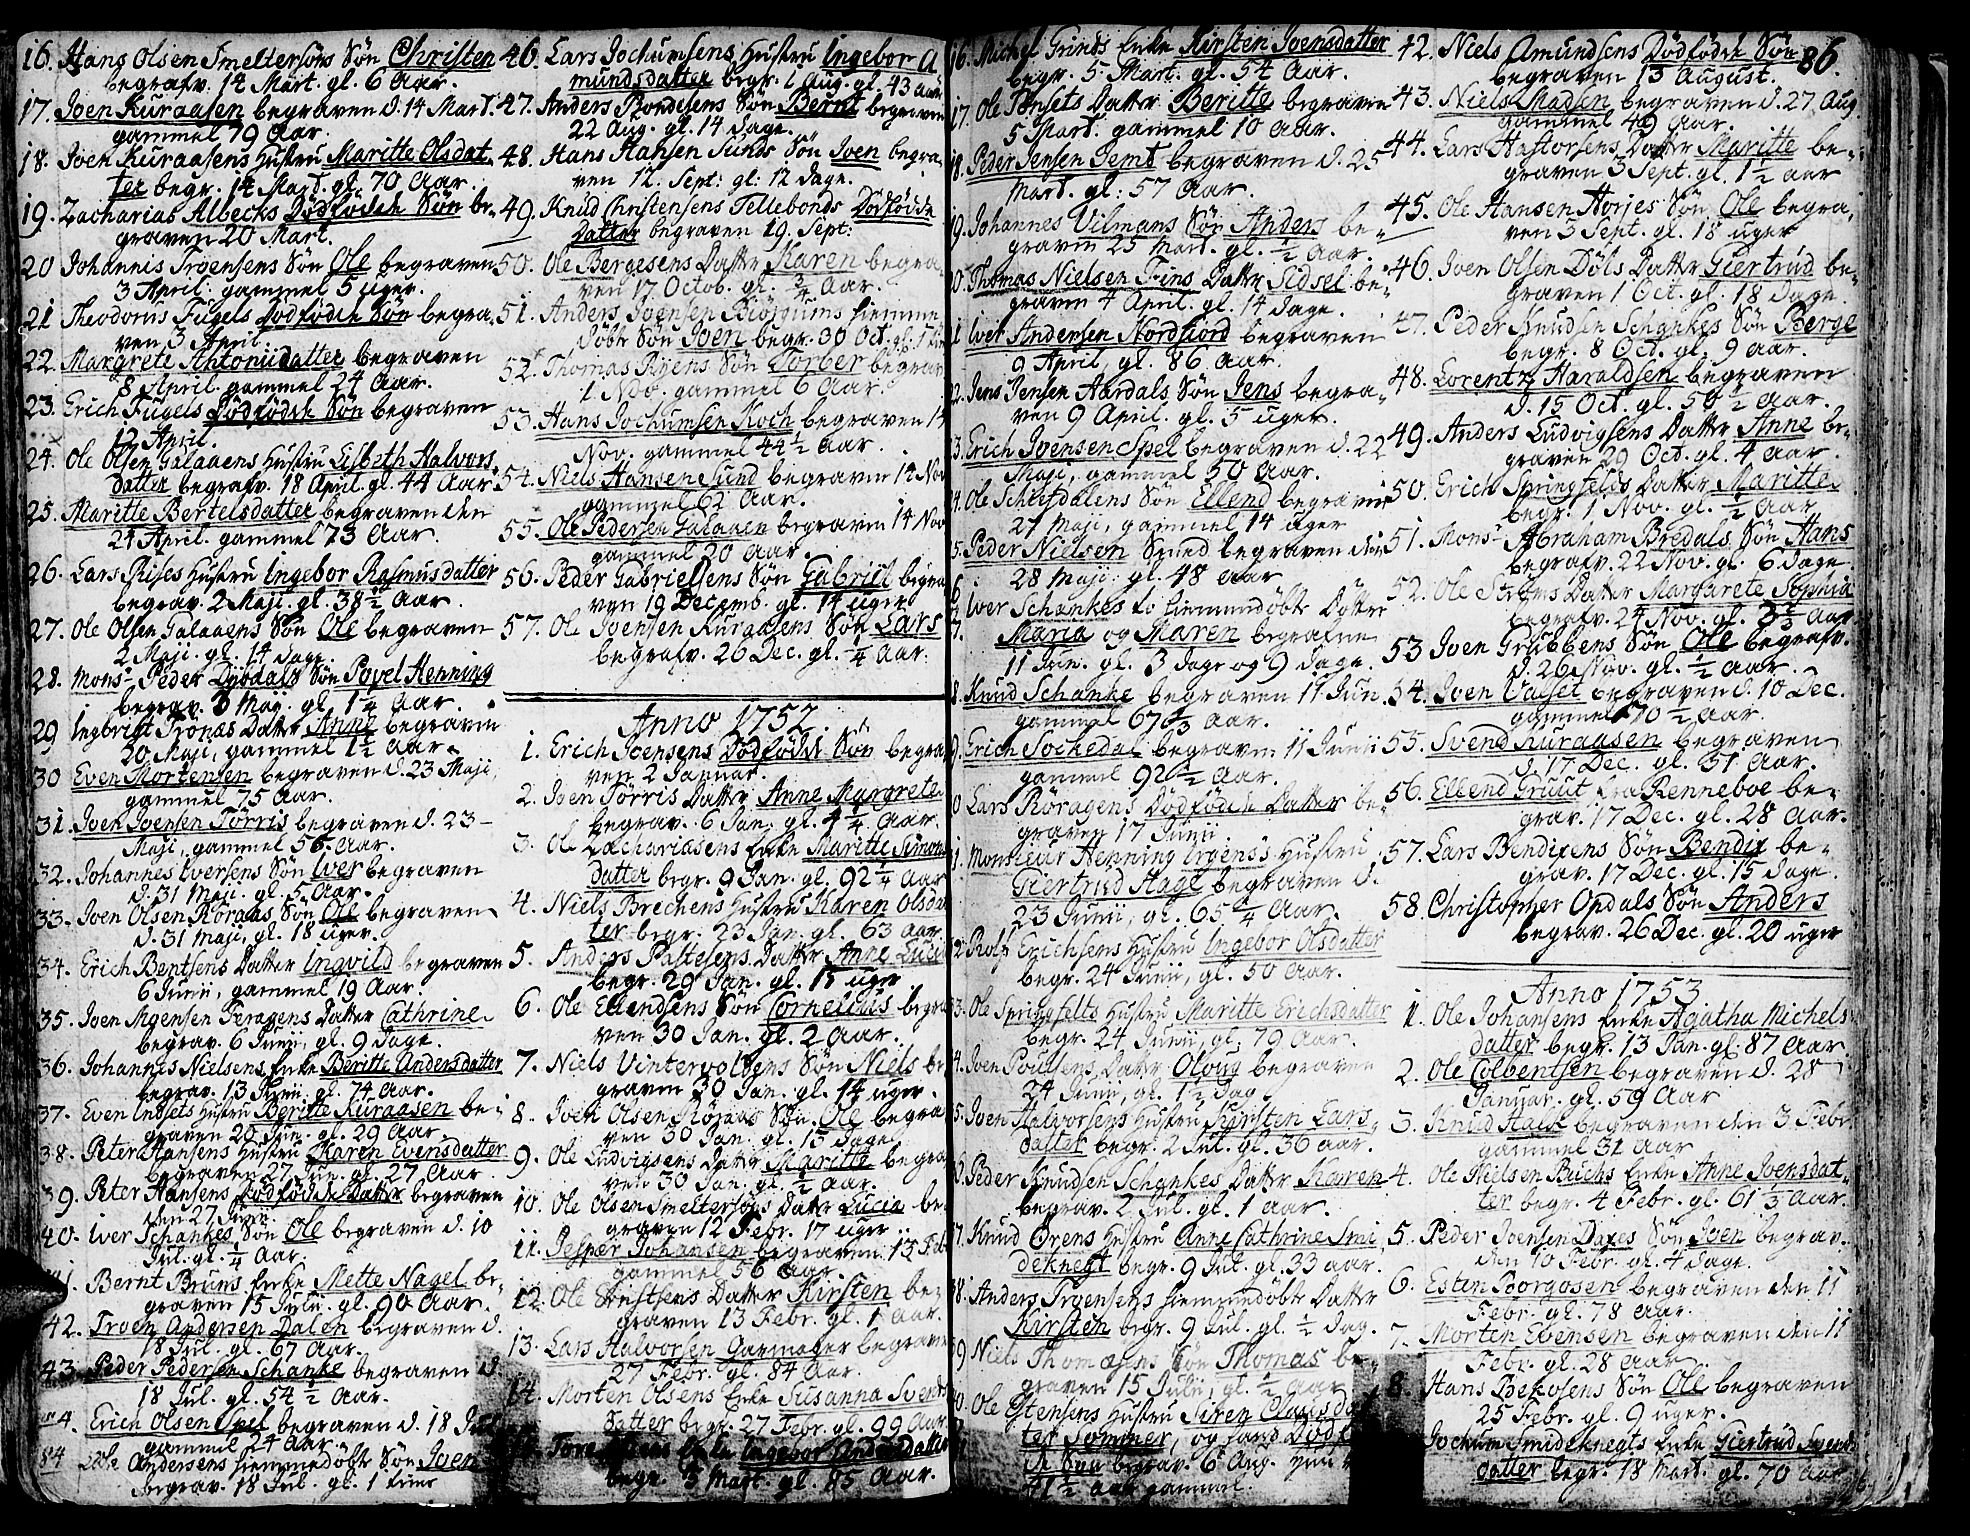 16. Hans Olsen Smeltersöns Sön Christen
begrafv. 14 Mart. gl. 6 Aar.
17. Joen Kuraasen begraven d. 14 Mart.
gammel 79 Aar.
18. Joen Kuraasens Hustru Maritte Olsdat
ter begr. 14 Mart. gl. 70 Aar.
19. Zacharias Albecks Dödfödde Sön be-
graven 20 Mart.
20 Johannis Troensens Sön Ole begraven
3 April. gammel 5 uger.
21 Theodorus Fugels Dödfödde Sön begra-
ven 3 April.
22. Margrete Antoniidatter begraven
8 April. gammel 24 Aar.
23. Erich Fugels Dödfödde Sön begraven
12 April.
24. Ole Olsen Galaaens Hustru Lisbeth Halvors
datter begrafv. 18 April. gl. 44 Aar
25. Maritte Bertelsdatter begraven den
21 April. gammel 73 Aar.
26. Lars Rises Hustru Ingebor Rasmusdatter
begrav. 2 Maji. gl. 38 1/2 Aar.
27. Ole Olsen Galaaens Sön Ole begraven
2 Maji. gl. 14 dage.
28. Mons: Peder Dysdals Sön Povel Henning
begrav. 3 Maji. gl. 1 1/4 Aar.
29 Ingbrigt Tronas Datter Anne begraven
20 Maji, gammel 1 1/2 Aar.
30 Even Mortensen begraven d. 23 Maji,
gammel 75 Aar.
31. Joen Joensen Törris begraven d. 23
Maji, gammel 56 Aar.
32. Johannes Iversens Sön Iver begraven
d. 31 Maji. gl. 5 Aar.
33. Joen Olsen Röraas Sön Ole begraven
d. 31 Maji, gl. 18 uger.
34. Erich Bentsens Datter Ingvild begraven
6 Junii, gammel 19 Aar.
35. Joen Moensen Feragens Datter Cathrine
begrav. 6 Junii, gl. 9 dage.
36. Johannis Nielsens Enke Beritte Andersdatter
begrav. 13 Junii. gl. 74 Aar.
37. Even Indsets Hustru Beritte Kuraasen be-
graven 20 Jun. gl. 29 Aar
38. Peter Hansens Hustru Karen Evensdatter
begraven 27 Jun. gl. 27 Aar
39. Peter Hansens Dödfödde Datter begraven
den 27 Junii.
40. Iver Schankes Sön Ole begraven d. 10
Jul. gl. 1/4 Aar.
1. Bernt Bruns Enke Mette Nagel be-
graven 15 Julii. gl. 90 Aar.
42. Troen Andersen Dalen begraven d.
18 Jul. gl. 67 Aar.
43. Peder Pedersen Schanke begraven d
18 Jul. gl. 54 1/2 Aar.
4. Erich Olsen Spel begraven d. 18 Jul
gammel 24 Aar.
Ole Andersens hiemmedöbte Sön Joen
begrav. 18 Jul. gl. 1 time
46. Lars Jochumsens Hustru Ingebor A
mundsdatter begr. 1 Aug. gl. 43 Aar
47. Anders Bondesens Sön Bernt begraven
22 Aug. gl. 14 dage.
48. Hans Hansen Sunds Sön Joen begra-
ven 12. Sept: gl: 12 dage.
49. Knud Christensens Tellebonds Dödfödde
Datter begraven 19. Sept:
50. Ole Bergesens Datter Karen begra-
ven 17 Octob. gl. 3/4 Aar.
51. Anders Joensen Biösgums hiemme
döbte Sön Joen begr. 30 Oct. gl. 1
52. Thomas Ryens Sön Torber begrav
1 Nov. gammel 6 Aar.
53. Hans Jochumsen Koch begraven 14
Nov. gammel 44 1/2 Aar.
54. Niels Hansen Sund begraven 14 Nov
gammel 62 Aar.
55. Ole Pedersen Galaaen begraven 14 Nov
gammel 20 Aar.
56. Peder Gabrielsens Sön Gabriel begra
ven 19 Decemb. gl. 14 uger
57. Ole Joensen Kuraasens Sön Lars
begrafv. 26 Dec. gl. 1/4 Aar.
Anno 1752.
1. Erich Joensens Dödfödde Sön begra
ven 2 Januar.
2. Joen Törris Datter Anne Margrete
begrav. 6 Jan. gl. 4 1/4 Aar.
3. Ole Zachariasens Enke Maritte Simons
datter begr. 9 Jan. gl. 92 1/4 Aar
4. Niels Brechens Hustru Karen Olsda
ter begr. 23 Jan. gl. 63 Aar
5. Anders Paltesens Datter Anne Lucie
begr. 29 Jan. gl. 15 uger
6. Ole Ellendsens Sön Cornelius begra
ven 30 Jan. gl. 2 Aar.
7. Niels Vintervoldens Sön Niels be
graven 30 Jan. gl. 14 uger.
8. Joen Olsen Röraas Sön Ole begra
ven 30 Jan. gl. 15 dage.
9. Ole Ludvigsens Datter Maritte begra
ven 30 Jan. gl. 1/2 Aar.
10. Ole Olsen Smeltersöns Datter Lucie be-
graven 12 Febr. 17 uger.
11. Jesper Johansen begraven 13 Feb
gammel 56 Aar
12. Ole Erichsens Datter Kirsten be-
graven 13 Febr. gl. 1 Aar.
13. Lars Halvorsen Garmager begraven
27 Febr. gl. 84 Aar.
14. Morten Olsens Enke Susanna Svends
datter begr. 27 Febr. gl. 99 Aar.
Enke Ingebor Andersdatter
begr. 5 Mart. gl. 85 Aar.
16. Michel Grinds Enke Kirsten Joensdatter
begr. 5 Mart. gl. 54 Aar.
17. Ole Tönsets Datter Beritte begraven
5 Mart. gammel 10 Aar.
18. Peder Jensen Jemt begraven d. 25
Mart. gl: 57 Aar.
19. Johannes Vilmans Sön Anders be-
graven 25 Mart. gl. 1/2 Aar.
0. Thomas Nielsen Fins Datter Sidsel be-
graven 4 April. gl. 14 dage.
1 Iver Andersen Nordfiord begraven
9 April, gl. 86 Aar.
2. Jens Jensen Aardals Sön Jens begra-
ven 9 April. gl. 5 uger.
3. Erich Joensen Spel begraven d. 22
Maji, gammel 50 Aar.
4. Ole Scheisdalens Sön Ellend begraven
27 Maji, gammel 14 uger
5. Peder Nielsen Smed begraven den
28 Maji: gl. 48 Aar
6 Iver Schankes to hiemmedöbte Döttre
7. Maria og Maren begrafne
11 Jun. gl. 3 dage og 9 dage.
8. Knud Schanke begraven 11 Jun.
gammel 67 1/3 Aar.
9. Erich Sockedal begraven 11 Junii
gammel 92 1/2 Aar.
0 Lars Röragens Dödfödde Datter be-
graven 17 Junii.
1. Monsieur Henning Irgens's Hustru
Giertrud Hagl begraven d.
23 Junii, gl. 65 1/4 Aar.
2. Rolf Erichsens Hustru Ingebor Olsdatter
begr. 24 Junii, gl. 50 Aar.
3. Ole Springfelts Hustru Maritte Erichsdatter
begr. 24 Junii, gl. 79 Aar.
4. Joen Poulsens Datter Oloug begraven
24 Junii, gl. 1 1/2 Dag.
5. Joen Halvorsens Hustru Kirsten Lars
datter begr. 2 Jul. gl. 36 aar.
Peder Knudsen Schankes Datter Maren
begrav. 2 Jul. gl. 1 aar.
7. Knud Örens Hustru Anne Cathrine Smi
deknegt begr. 9 Jul. gl. 33 aar.
38. Anders Troensens hiemmedöbte Datter
Kirsten begr. 9 Jul. gl. 1/2 dag.
9 Niels Thomæsens Sön Thomas be-
graven 15 Julii, gl. 1/2 Aar
0. Ole Estensens Hustru Siren Clausdat
ter Sommer, og hans Dödf
de Sön begrav. 6 Aug. hun
41 1/2 Aar gammel.
42. Niels Amundsens Dödfödde Sön
begraven 13 August.
86.
43. Niels Madsen begraven d. 27 Aug
gammel 49 Aar.
44. Lars Hastorsens Datter Maritte be-
graven 3 Sept. gl. 1 1/2 aar
45. Ole Hansen Horjes Sön Ole begra-
ven 3 Sept. gl. 18 uger
46. Joen Olsen Döls Datter Giertrud be-
graven 1 Oct. gl. 18 dage.
47. Peder Knudsen Schankes Sön Berge
begr. 8 Oct. gl. 9 aar.
48. Lorentz Haraldsen begraven
d. 15 Oct. gl. 50 1/2 Aar.
49. Anders Ludvigsens Datter Anne be-
graven 29 Oct. gl. 4 aar.
50. Erich Springfelds Datter Maritte
begr. 1 Nov. gl. 1/2 Aar
51. Mons: Abraham Bredals Sön Hans
begrafv. 22 Nov. gl. 6 dage
52. Ole Ströms Datter Margarete Sophia
begrafv. 24 Nov. gl. 3 1/3 Aar
53 Joen Grubbens Sön Ole begrafv.
d. 26 Nov. gl. 1/2 Aar.
54. Joen Valset begraven d. 10 Dec.
gammel 70 1/2 Aar.
55. Svend Kuraasen begraven
d. 17 Dec. gl. 31 Aar.
56. Ellend Gruut fra Renneboe be-
grav. 17 Dec. gl. 28 Aar.
57. Lars Bendixens Sön Bendix be-
grav. 17 Dec. gl. 15 dage.
58. Christopher Opdals Sön Anders
begrav. 26 Dec. gl. 20 uger
Anno 1753
1. Ole Johansens Enke Agatha Michels
datter begr. 13 Jan. gl. 87 Aar.
2. Ole Colbentsen begraven d. 28
Januar. gl. 59 Aar
3. Knud Halck begraven den 3 Febr.
gammel 31 Aar
4. Ole Nielsen Buchs Enke Anne Joensdat-
ter begr. 4 Febr. gl. 61 1/3 Aar.
5. Peder Joensen Daxes Sön Joen begrav.
den 10 Febr. gl. 4 dage.
6. Esten Borgosen begraven den 11
Febr. gl. 78 Aar.
7. Morten Evensen begraven den 11
Febr. gl. 28 Aar.
8. Hans Bekosens Sön Ole begraven
25 Febr. gl. 9 uger.
Jochum Smideknegts Enke Giertrud Svends
datter begr. 18 Mart. gl. 70 Aar